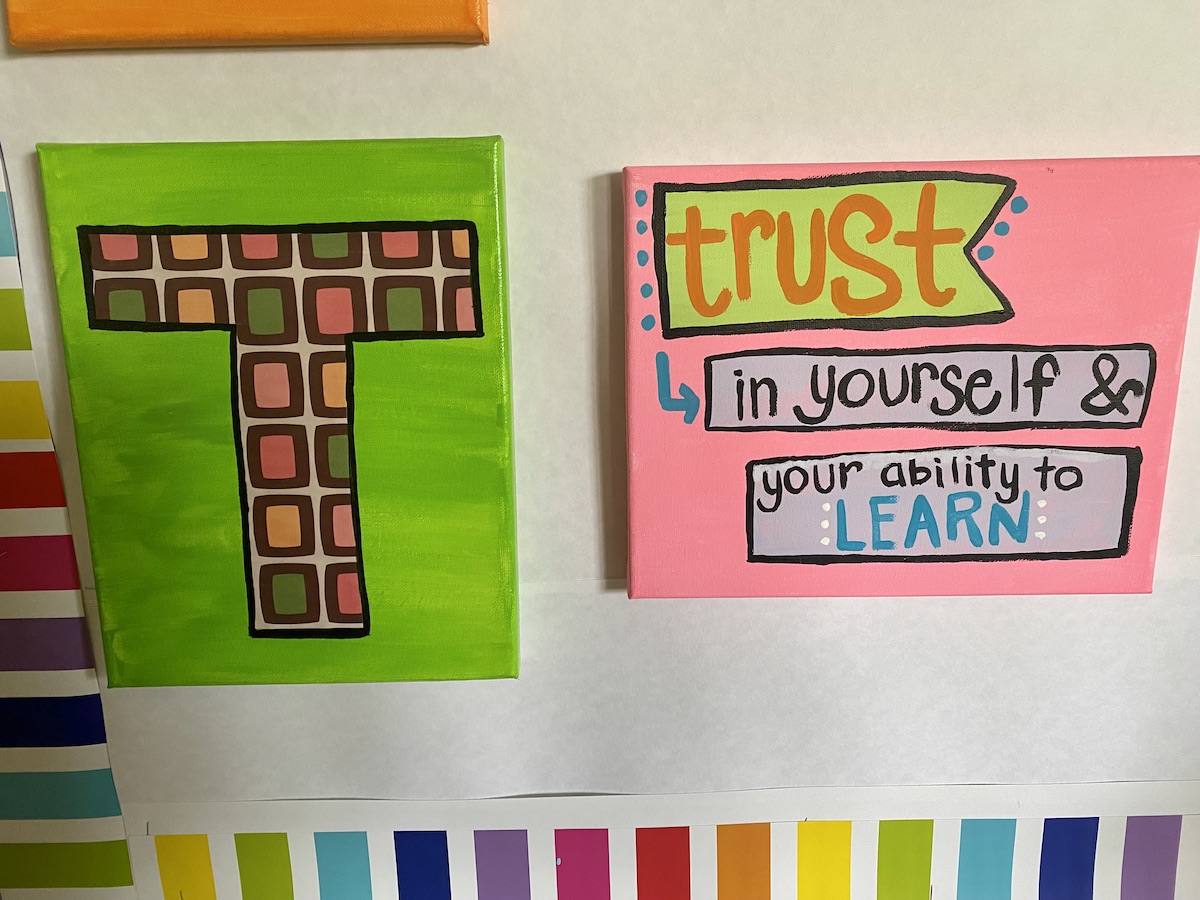 T
trust
in yourself &
your ability to
LEARN